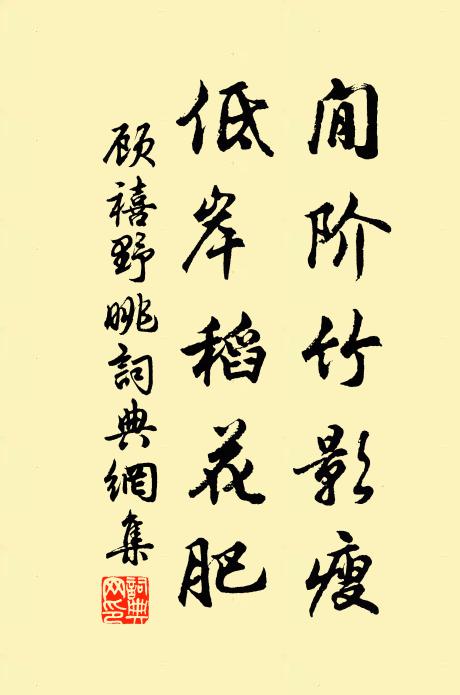 闲阶竹影瘦
低岸稻花肥
顾禧野眺詞典網集
詞典网印